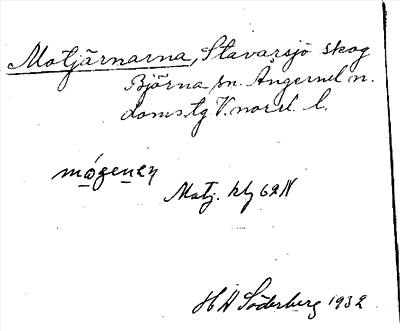 Motjärnarna, Stavarsjö skog
Björna sn. Ångerml n.
doms.lg V.norrl. l.
Matj. klg 62 N
H H Söderberg 1932